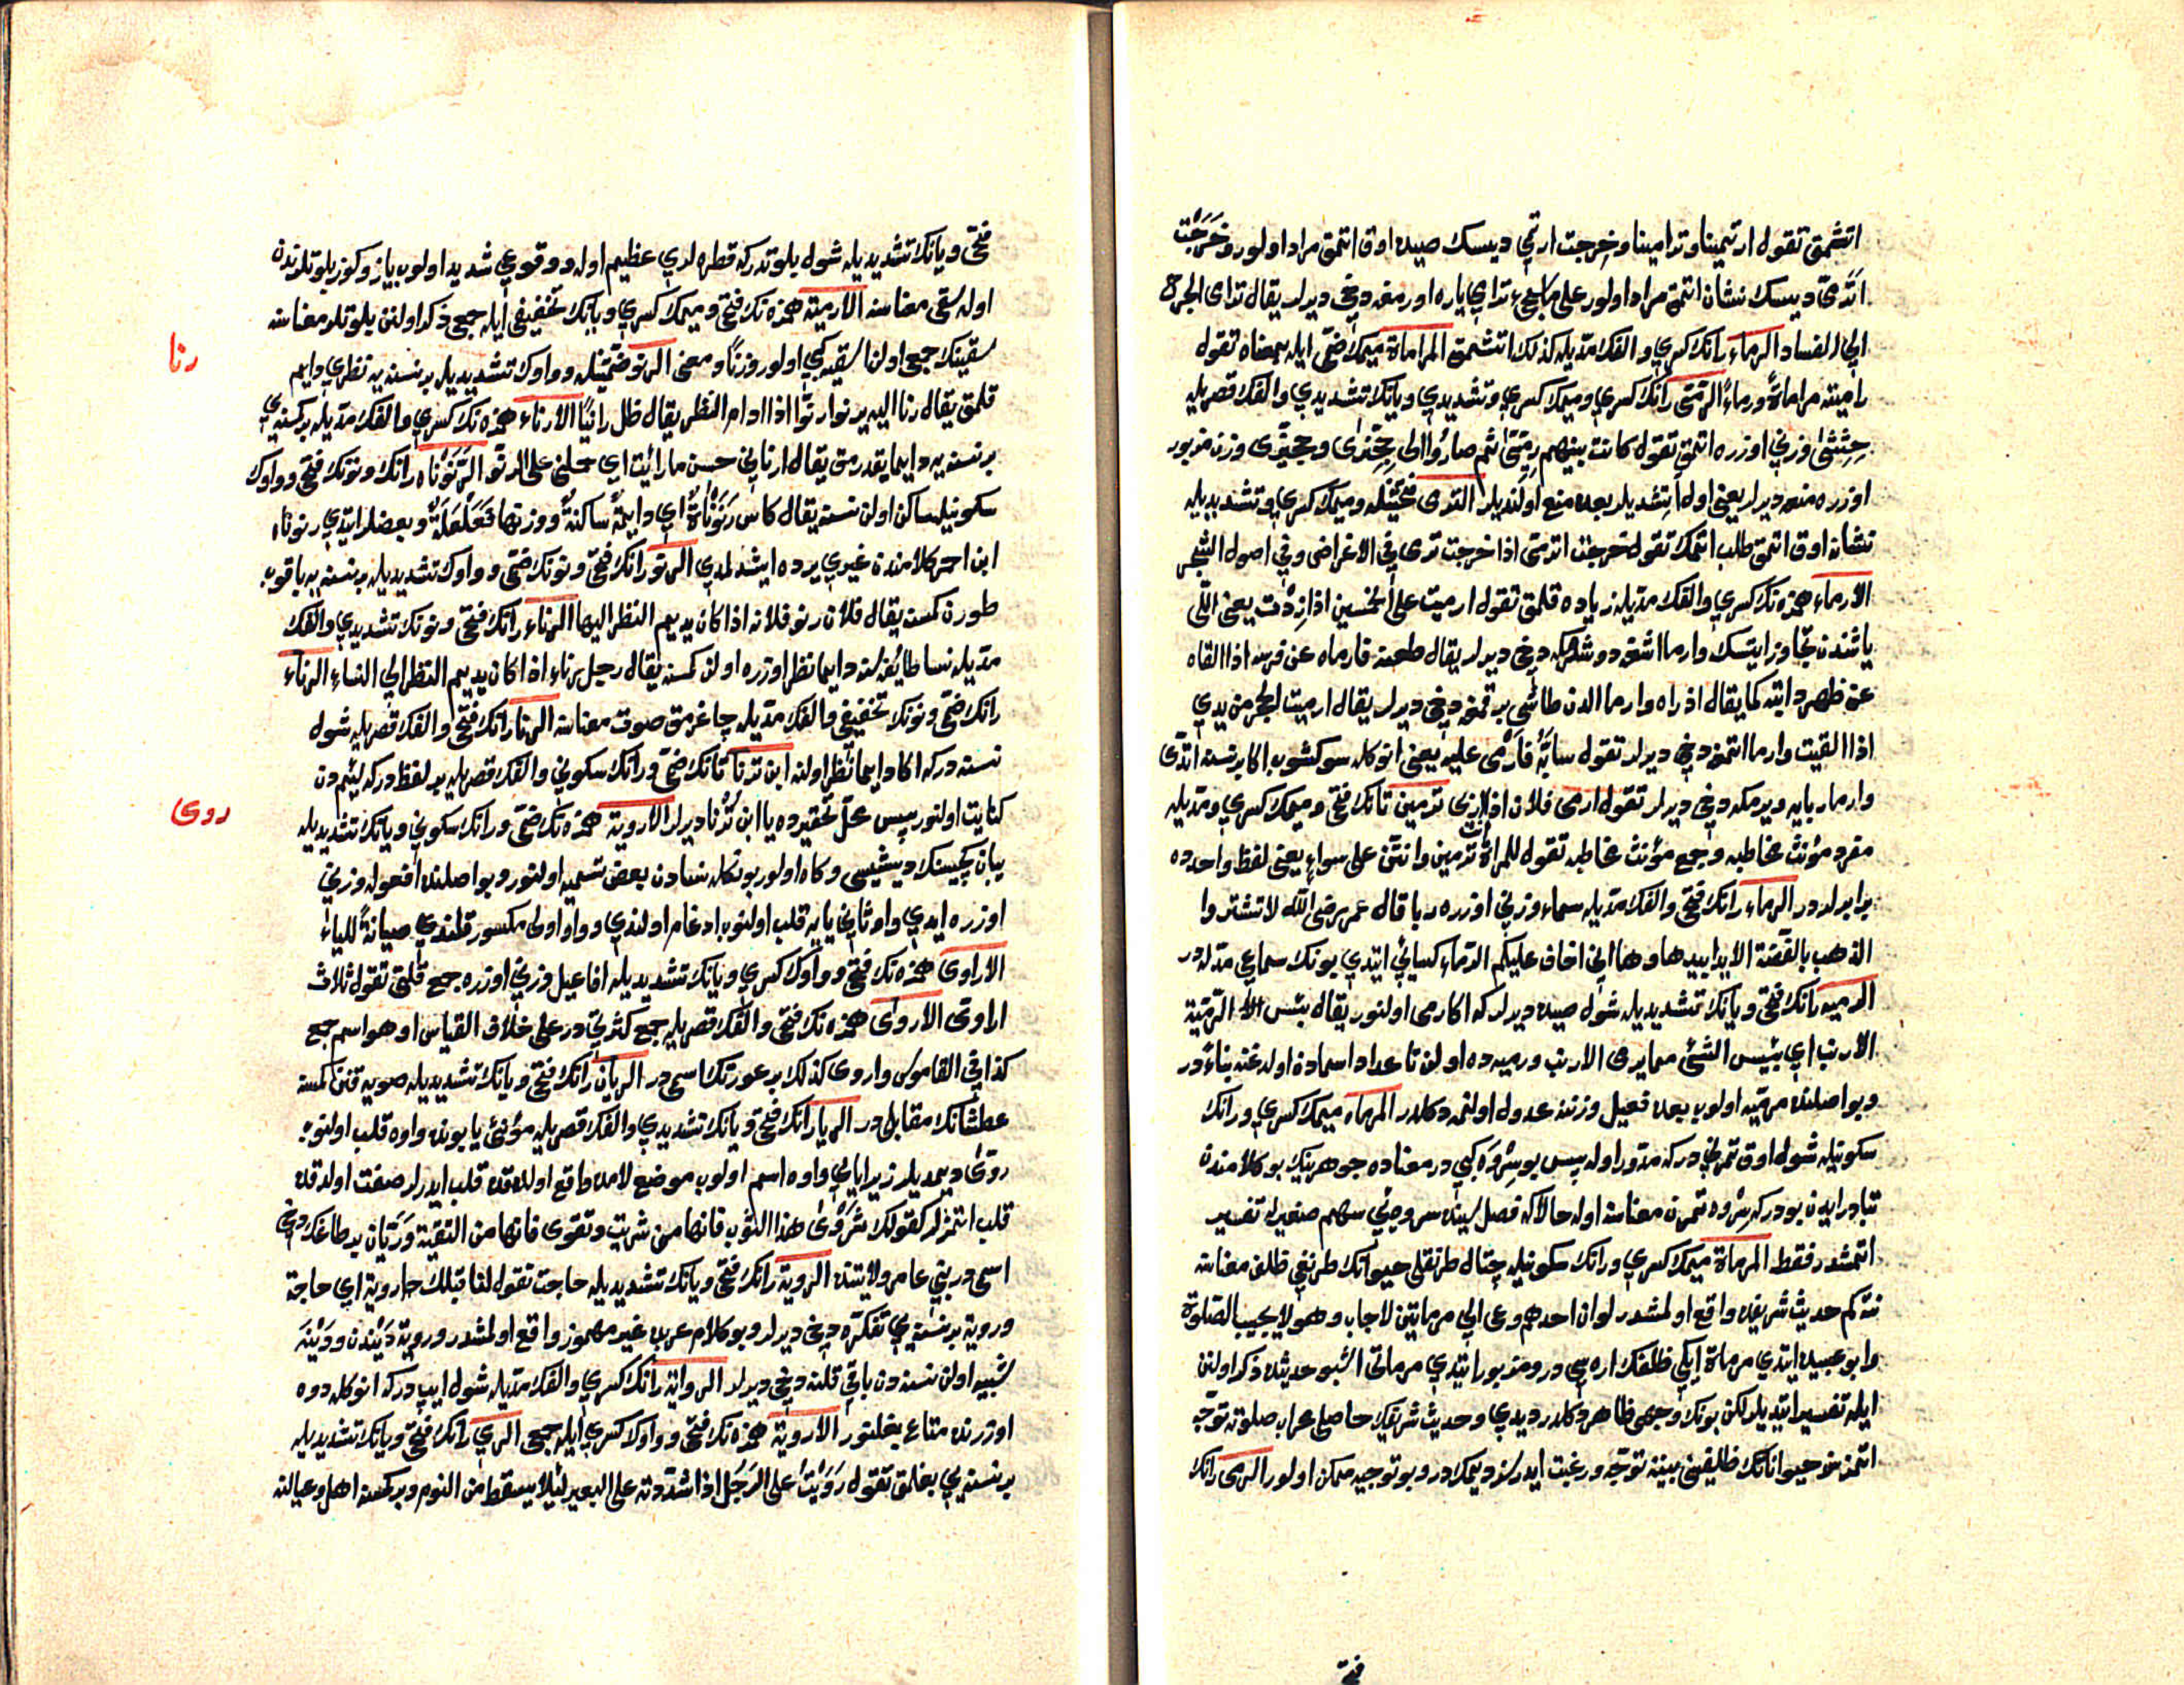 اتشمق تقول ارتمينا وترامينا وخرجت ارتمي ديسك صيده اوق اتمق مراد اولور وخرجت
اترمى ديسك نشان اتمق مراد اولور على يره اورمغه دخي ديرلر يقال ترامى الجرح
الى الفساد الرماء رانك كسري والفك مديله كذلك اتشمق المراماة ميمك ضمى ايله بمعناه تقول
راميته مراماة ورماء الرميى رانك كسري وميمك كسري وتشديدي ويانك تشديدي والفك قصريله
وزني اوزره اتمق تقول كانت بينهم رميى ثم صاروا الى حجيزى وحجيزى وزن مزبور
اوزره منعه ديرلر يعني اول اتشديلر بعده منع اولنديلر الترمى فتحتينله وميمك كسري وتشديديله
نشانه اوق اتمق طلب اتمك تقول خرجت اترمى اذا خرجت ترمى في الاغراض وفي اصول الشجر
الارماء همزه نك كسري والفك مديله زياده قلمق تقول ارميت على الخمسين اذا زدت يعني اللى
ياشندن تجاوز ايتسك وارما اشغه دوشرمكه دخي ديرلر يقال طعنه فارماه عن فرسه اذا القاه
عن ظهر دابته كما يقال اذراه وارما الدن طاشى برقمغه دخي ديرلر يقال ارميت الحجر من يدي
اذا القيت وارما اتمغه دخي ديرلر تقول سابّه فارمى عليه يعني انوكله سوكشوب اكا برنسنه اتدى
وارما ربايه ويرمكه دخي ديرلر تقول ارمى فلان اذا اربى ترمين تانك فتحى وميمك كسري ومديله
مفرد مؤنث مخاطبه وجمع مؤنث مخاطبه تقول للمراة انت ترمين وانتن على سواء يعني لفظ واحدده
برابرلردر الرماء رانك فتحى والفك مديله سماء وزني اوزره ربا قال عمر رضي الله لا تشتروا
الذهب بالفضة الا يدا بيد ها وها اني اخاف عليكم الرماء كسائي ايتدي بونك سماعي مدله در
الرميه رانك فتحى ويانك تشديديله شول صيده ديرلر كه اكا رمى اولنور يقال بئس الرمية
الارنب اي بئيس الشئ مما يرمى الارنب ورميه ده اولن تا عداد اسماده اولدغنه بناء در
وبو اصلنده مرميه اولوب بعده فعيل وزننه عدول اولنمه دكلدر المرماه ميمك كسري ورانك
سكونيله شول اوق تمرنيدر كه مدور اوله پس بو سروه كبي در معناده جوهرينك بو كلامندن
تبادر ايدن بودر كه سروه تمرن معناسنه اوله حالا كه فصل سينده سروه يي سهم صغيرله تفسير
اتمشدر فقط المرماة ميمك كسري ورانك سكونيله چتال طرنقلى حيوانك طرنغي ظلف معناسنه
نته كم حديث شريفده واقع اولمشدر لو ان احدهم دعى الى مرماتين لاجاب وهو لا يجيب الى الصلوة
وابو عبيده ايتدي مرماة ايكي ظلفك اره سي در ومزبور ايتدي مرماتى اشبو حديثده ذكر اولنن
ايله تفسير اتديلر لكن بونك وجهى ظاهر دكلدر ديدي وحديث شريفك حاصلى عرب صلوته توجه
اتمز نوحيواناتك ظليفينى يينه توجه ورغبت ايدرلر ديمكدر وبو توجيه ممكن اولور الرمى رانك
فتحى
فتحى ويانك تشديديله شول بلوتدر كه قطره لري عظيم اوله ووقوعي شديد اولوب ياز وكوز بلوتلرندن
اوله سقى معناسنه الارمية همزه نك فتحى وميمك كسري ويانك تخفيفى ايله جمعى ذكر اولنن بلوتلر معناسنه
سقينك جمعى اولنا سقيه كبي اولور وزنا ومعنى الرنو ضمتينله وواوك تشديديله برنسنه يه نظري دايم
رنا
قلمق يقال رنا اليه يرنو رنوا اذا ادام النظر يقال ظل رانيا الارناء همزه نك كسري والفك مديله بركسنه يي
برنسنه يه دايما بقدرمق يقال ارناني حسن ما رايت اي حملني على الرنو الرنوناه رانك ونونك فتحى وواوك
سكونيله ساكن اولن نسنه يقال كاس رنوناة اي دايمة ساكنة ووزنها فعلعلة وبعضلر ايتدي رنوناه
ابن احمر كلامندن غيري يرده ايشدلمدي الرنو رانك فتحى ونونك ضمى وواوك تشديديله برنسنه يه باقوب
طورن كمسنه يقال فلان رنو فلانه اذا كان يديم النظر اليها الرناء رانك فتحى ونونك تشديدي والفك
مديله نسا طائفه سنه دايما نظر اوزره اولن كمسنه يقال رجل رناء اذا كان يديم النظر الى النساء الرناء
رانك ضمى ونونك تخفيفى والفك مديله چاغرمق صوت معناسنه الرنا رانك فتحى والفك قصريله شول
نسنه در كه اكا دايما نظر اولنه ابن ترنا تانك ضمى ورانك سكوني والفك قصريله بر لفظدر كه لئيمدن
كنايت اولنور پس محل تحقيرده يا ابن ترنا ديرلر الاروية همزه نك ضمى ورانك سكوني ويانك تشديديله
روى
يبان كچيسنك ديشيسى وكاه اولور بونكله نسادن بعض تسميه اولنور وبو اصلنده افعوله وزني
اوزره ايدي واو ثاني يايه قلب اولنوب ادغام اولندي وواو اولى مكسور قلندي صيانة للياء
الاراوى همزه نك فتحى وواوك كسري ويانك تشديديله افاعيل وزني اوزره جمع قلتى تقول ثلاث
اراوى الاروى همزه نك فتحى والفك قصريله جمع كثرتي در على خلاف القياس او هو اسم جمع
كذا في القاموس واروى كذلك بر عورتك اسمى در الريان رانك فتحى ويانك تشديديله صويه قنن كمسنه
عطشانك مقابلى در الريا رانك فتحى ويانك تشديدي والفك قصريله مؤنثى يا بونده واوه قلب اولنوب
روى ديمديلر زيرا يائي واوه اسم اولوب موضع لامده واقع اولدقده قلب ايدرلر صفت اولدقده
قلب اتمزلر كقولك شروى هذا الثوب فانها من شريت وتقوى فانها من التقية وريان بر طاغك دخي
اسمى در بني عامر ولايتنده الروية رانك فتحى ويانك تشديديله حاجت تقول لنا قبلك روية اي حاجة
وروية برنسنه يي تفكره دخي ديرلر وبو كلام عربده غير مهموز واقع اولمشدر وروية دينن ودينه
شبيه اولن نسنه دن باقي قلنه دخي ديرلر الرواية رانك كسري والفك مديله شول ايپ در كه انوكله دوه
اوزرنده متاع بغلنور الاروية همزه نك فتحى وواوك كسري ايله جمعى الري رانك فتحى ويانك تشديديله
برنسنه يي بغلمق تقول رويت على الرجل اذا شددته على البعير لئلا يسقط من النوم وبركمسنه اهل وعيالنه